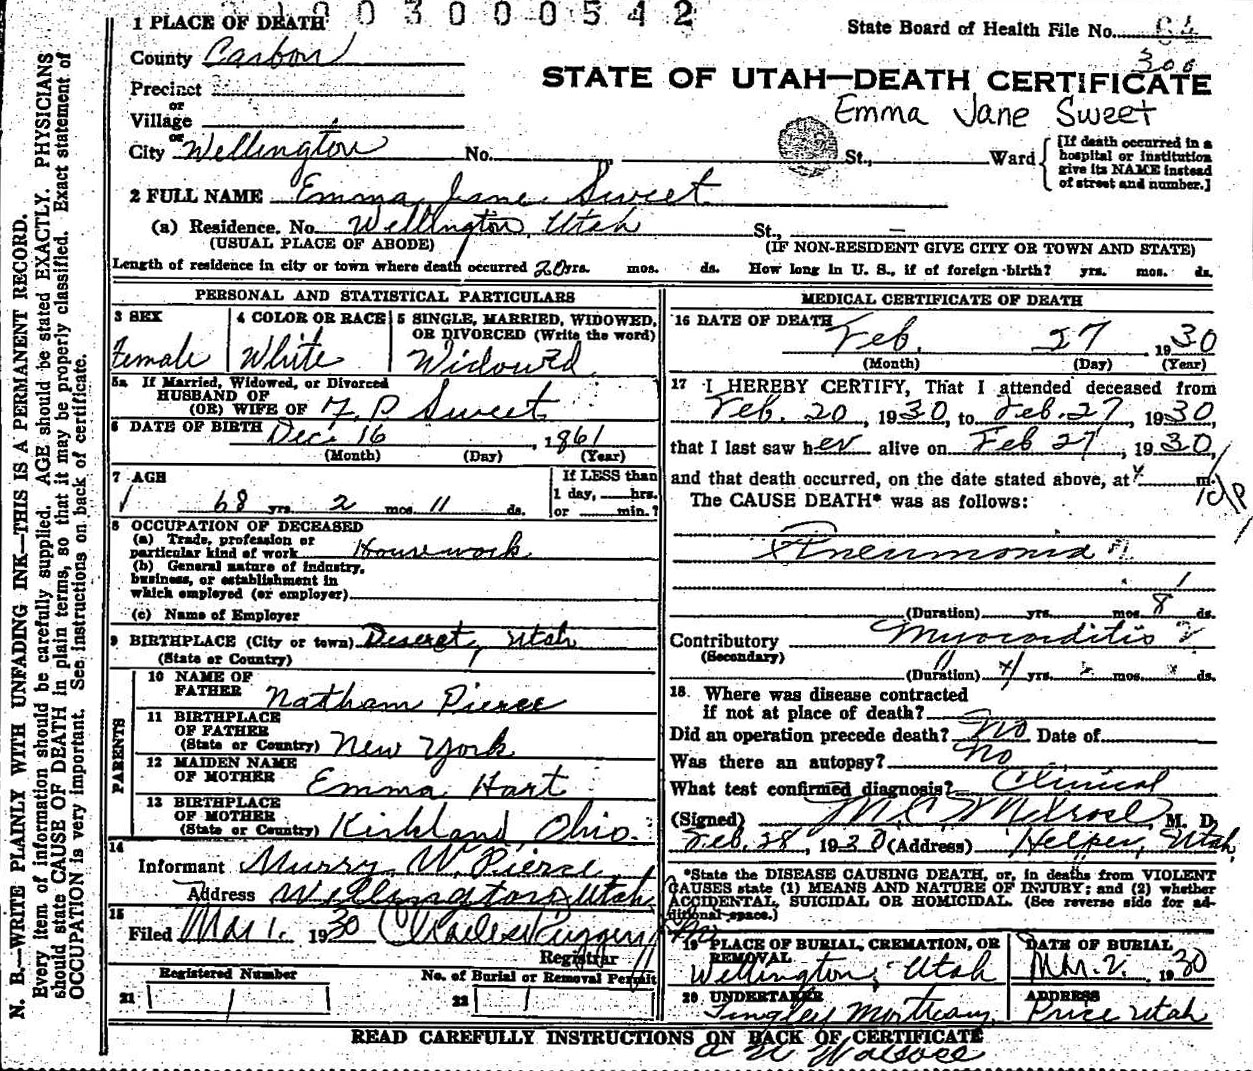 1003000542
1 PLACE OF DEATH
State Board of Health File No. 64
County Carbon
300
STATE OF UTAH—DEATH CERTIFICATE
Precinct
or
Village
Emma Jane Sweet
or
City Wellington No. St., Ward
[If death occurred in a
hospital or institution
give its NAME instead
of street and number.]
2 FULL NAME Emma Jane Sweet
(a) Residence. No. Wellington, Utah St., —
(USUAL PLACE OF ABODE) (IF NON-RESIDENT GIVE CITY OR TOWN AND STATE)
Length of residence in city or town where death occurred 20 yrs. mos. ds. How long in U. S., if of foreign birth? yrs. mos. ds.
PERSONAL AND STATISTICAL PARTICULARS
3 SEX
Female
4 COLOR OR RACE
White
5 SINGLE, MARRIED, WIDOWED,
OR DIVORCED (Write the word)
Widowed
5a If Married, Widowed, or Divorced
HUSBAND OF
(OR) WIFE OF F. P. Sweet
6 DATE OF BIRTH Dec. 16, 1861
(Month) (Day) (Year)
7 AGE
68 yrs. 2 mos 11 ds.
If LESS than
1 day, hrs.
or min.?
8 OCCUPATION OF DECEASED
(a) Trade, profession or
particular kind of work Housework
(b) General nature of industry,
business, or establishment in
which employed (or employer)
(c) Name of Employer
9 BIRTHPLACE (City or town) Deseret, Utah
(State or Country)
PARENTS
10 NAME OF
FATHER Nathan Pierce
11 BIRTHPLACE
OF FATHER
(State or Country) New York
12 MAIDEN NAME
OF MOTHER Emma Hart
13 BIRTHPLACE
OF MOTHER
(State or Country) Kirkland, Ohio.
14
Informant Murry W. Pierce
Address Wellington, Utah
15
Filed Mar 1. 1930
Registrar
Registered Number No. of Burial or Removal Permit
21 22
MEDICAL CERTIFICATE OF DEATH
16 DATE OF DEATH
Feb. 27 1930
(Month) (Day) (Year)
17 I HEREBY CERTIFY, That I attended deceased from
Feb. 20, 1930, to Feb. 27, 1930,
that I last saw her alive on Feb 27, 1930,
and that death occurred, on the date stated above, at m.
The CAUSE DEATH* was as follows:
Pneumonia
(Duration) yrs. mos 8 ds.
Contributory Myocarditis
(Secondary)
(Duration) yrs. mos. ds.
18. Where was disease contracted
if not at place of death?
Did an operation precede death? No Date of
Was there an autopsy? No
What test confirmed diagnosis? Clinical
(Signed) M. D.
Feb. 28, 1930 (Address) Helper, Utah
*State the DISEASE CAUSING DEATH, or, in deaths from VIOLENT
CAUSES state (1) MEANS AND NATURE OF INJURY; and (2) whether
ACCIDENTAL, SUICIDAL OR HOMICIDAL. (See reverse side for ad-
ditional space.)
19 PLACE OF BURIAL, CREMATION, OR
REMOVAL
Wellington, Utah
DATE OF BURIAL
Mar. 2. 1930
20 UNDERTAKER
ADDRESS
Price Utah
READ CAREFULLY INSTRUCTIONS ON BACK OF CERTIFICATE
N. B.—WRITE PLAINLY WITH UNFADING INK—THIS IS A PERMANENT RECORD.
Every item of information should be carefully supplied. AGE should be stated EXACTLY. PHYSICIANS
should state CAUSE OF DEATH in plain terms, so that it may be properly classified. Exact statement of
OCCUPATION is very important. See instructions on back of certificate.